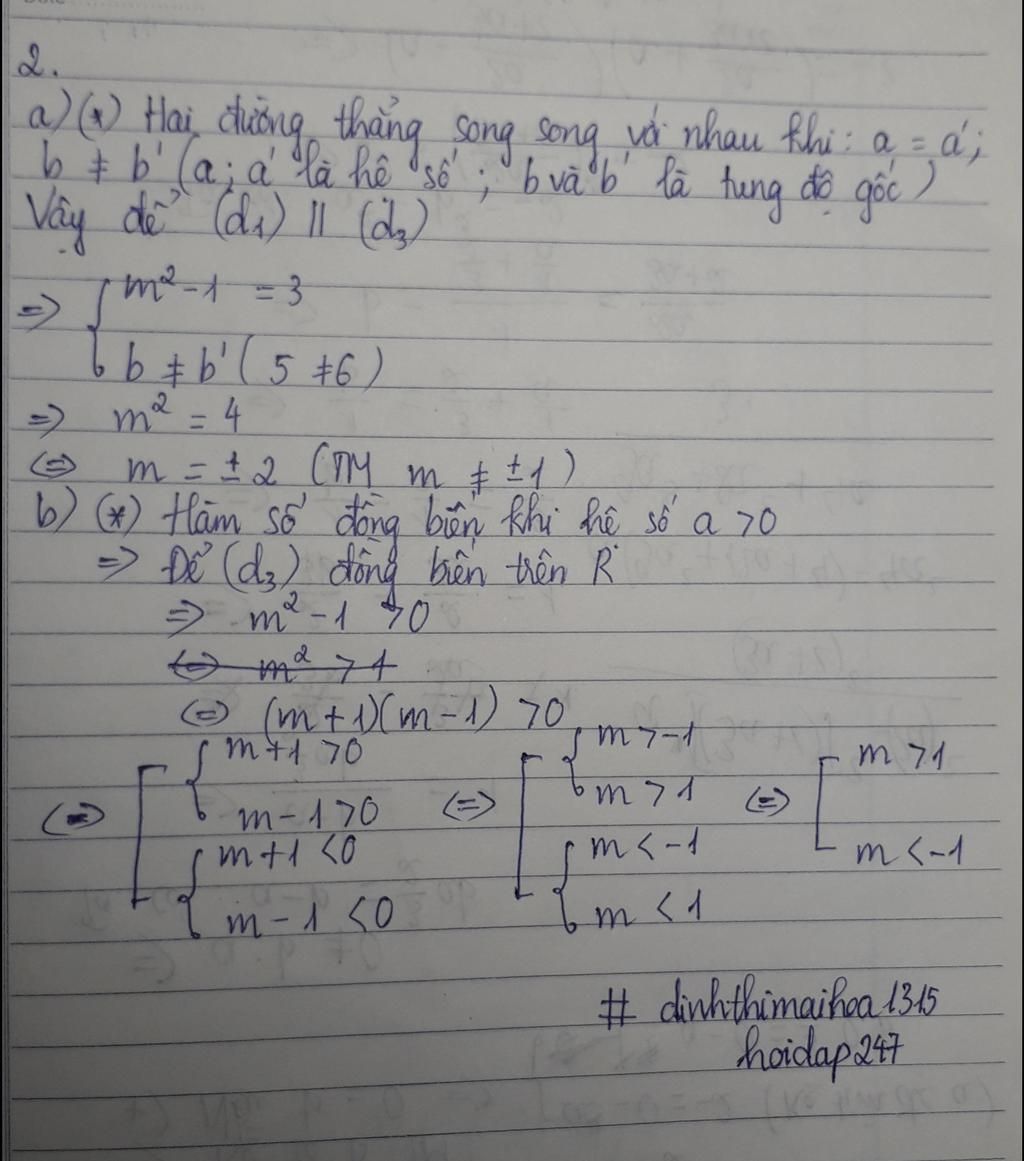 2.
a) (*) Hai đường thẳng song song với nhau khi: a = a';
b ≠ b' (a; a' là hệ số; b và b' là tung độ gốc)
Vậy để (d₁) // (d₃)
=> { m² - 1 = 3
b ≠ b' (5 ≠ 6)
=> m² = 4
<=> m = ± 2 (TM m ≠ ± 1)
b) (*) Hàm số đồng biến khi hệ số a > 0
=> Để (d₃) đồng biến trên R
=> m² - 1 > 0
<=> m² > 1
<=> (m + 1)(m - 1) > 0
<=> [ { m + 1 > 0 <=> [ { m > -1 <=> [ m > 1
m - 1 > 0 m > 1
{ m + 1 < 0 { m < -1 m < -1
m - 1 < 0 m < 1
# dinhthimaihoa1315
hoidap247